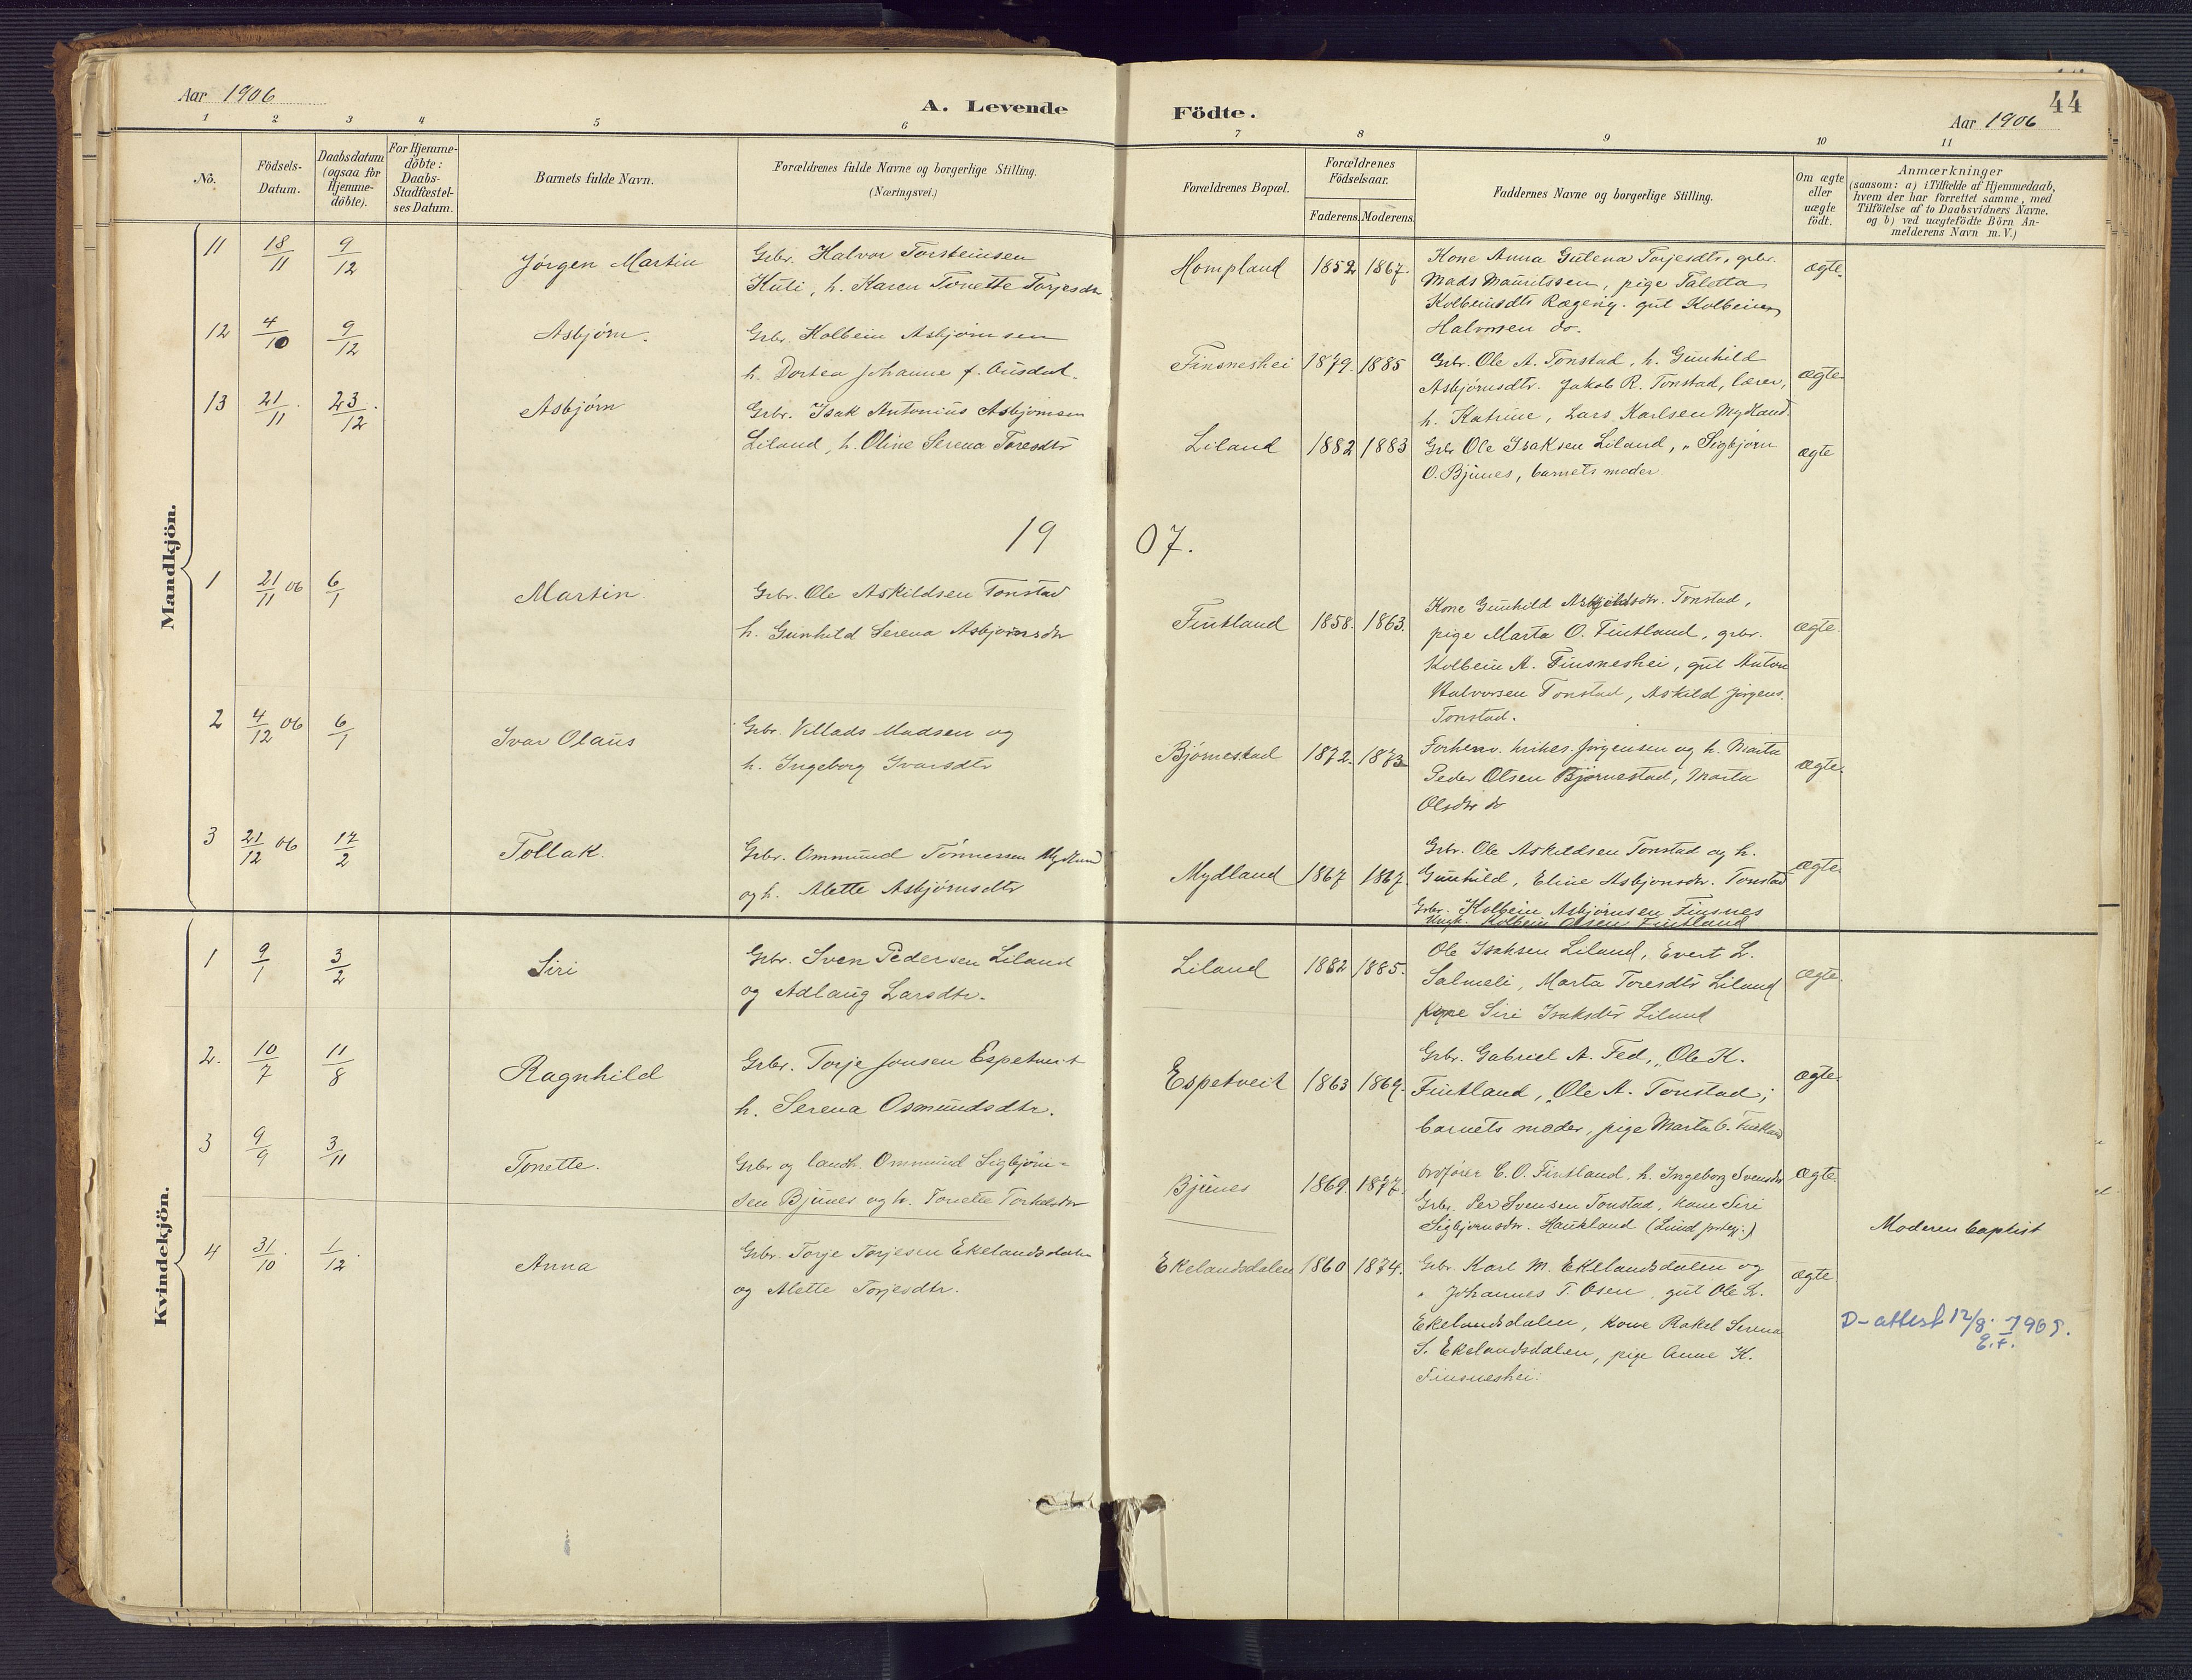 44
Aar 1906
A. Levende
Födte.
Aar 1906
1 2 3 4 5 6 7 8 9 10 11
No.
Födsels-
Datum.
Daabsdatum
(ogsaa for
Hjemme-
döbte).
For Hjemme-
döbte:
Daabs-
Stadfæstel-
ses Datum.
Barnets fulde Navn.
Forældrenes fulde Navne og borgerlige Stilling.
(Næringsvei.)
Forældrenes Bopæl.
Forældrenes
Födselsaar.
Faderens. Moderens.
Faddernes Navne og borgerlige Stilling.
Om ægte
eller
uægte
födt.
Anmærkninger
(saasom: a) i Tilfælde af Hjemmedaab,
hvem der har forrettet samme, med
Tilföielse af to Daabsvidners Navne,
og b) ved uægtefödte Börn An-
melderens Navn m. V.)
Mandkjön.
11 18/11 9/12 Jørgen Martin
Grbr. Halvor Torsteinsen
Kuli, h. Karen Tonette Torjesdtr
Hompland 1852 1867.
Kone Anna Gulena Torjesdtr, grbr.
Mads Mauritssen, pige Taletta
Kolbeinsdtr Rægevig. gut Kolbein
Halvorsen do.
ægte.
12 4/10 9/12 Asbjørn.
Grbr. Kolbein Asbjørnsen
h. Dortea Johanne f. Ousdal.
Finsneshei 1879. 1885
Grbr. Ole A. Tonstad, h. Gunhild
Asbjørnsdtr. Jakob R. Tonstad, lærer,
h. Katrine, Lars Karlsen Mydland.
ægte
13 21/11. 23/12. Asbjørn
Grbr. Isak Antonius Asbjørnsen
Liland, h. Oline Serena Toresdtr
Liland 1882 1883
Grbr Ole Isaksen Liland, " Sigbjørn
O. Bjunes, barnets moder
ægte
1907.
1 21/11 06 6/1 Martin.
Grbr. Ole Askildsen Tonstad
h. Gunhild Serena Asbjørnsdtr
Fintland 1858. 1863.
Kone Gunhild Tonstad,
pige Marta O. Fintland, grbr.
Kolbein A. Finsneshei, gut Anton
Halvorsen Tonstad, Askild Jørgens.
Tonstad.
ægte.
2 4/12 06 6/1 Ivar Olaus
Grbr. Villads Madsen og
h. Ingeborg Ivarsdtr
Bjørnestad 1872. 1873
Forhenv. Jørgensen og h. Marta
Peder Olsen Bjørnestad, Marta
Olsdtr do
ægte.
3 21/12 06 17/2 Tollak.
Grbr. Ommund Tønnessen Mydland
og h. Alette Asbjørnsdtr
Mydland 1867 1867.
Grbr. Ole Askildsen Tonstad og h.
Gunhild, Eline Asbjørnsdtr. Tonstad
Grbr. Kolbein Asbjørnsen Finsnes
Ungk. Kolbein Olsen Fintland
ægte
Kvindekjön.
1 9/1 3/2 Siri
Grbr. Sven Pedersen Liland
og Adlaug Larsdtr.
Liland 1882 1885.
Ole Isaksen Liland, Evert L.
Salmeli, Marta Toresdtr Liland
Kone Siri Isaksdtr Liland
ægte.
2. 10/7 11/8 Ragnhild
Grbr. Torje Jonsen Espetveit
h. Serena Osmundsdtr.
Espetveit 1863 1869.
Grbr. Gabriel A. Fed, " Ole K.
Fintland, " Ole A. Tonstad;
barnets moder, pige Marta O. Fintland
ægte.
3 9/9 3/11 Tonette.
Grbr og landh. Ommund Sigbjørn-
sen Bjunes og h. Tonette Torkelsdtr
Bjunes 1869. 1877.
Ordfører E. O. Fintland, h. Ingeborg Svensdtr
Grbr. Per Svensen Tonstad, kone Siri
Sigbjørnsdtr. Haukland (Lund prstgj.)
ægte.
Moderen baptist
4 31/10. 1/12. Anna
Grbr. Torje Torjesen Ekelandsdalen
og Alette Torjesdtr.
Ekelandsdalen 1860 1874.
Grbr. Karl M. Ekelandsdalen og
" Johannes T. Osen, gut Ole L.
Ekelandsdalen, kone Rakel Serena
S. Ekelandsdalen, pige Anne K.
Finsneshei.
ægte
D-attest 12/8. 1965.
E.t.